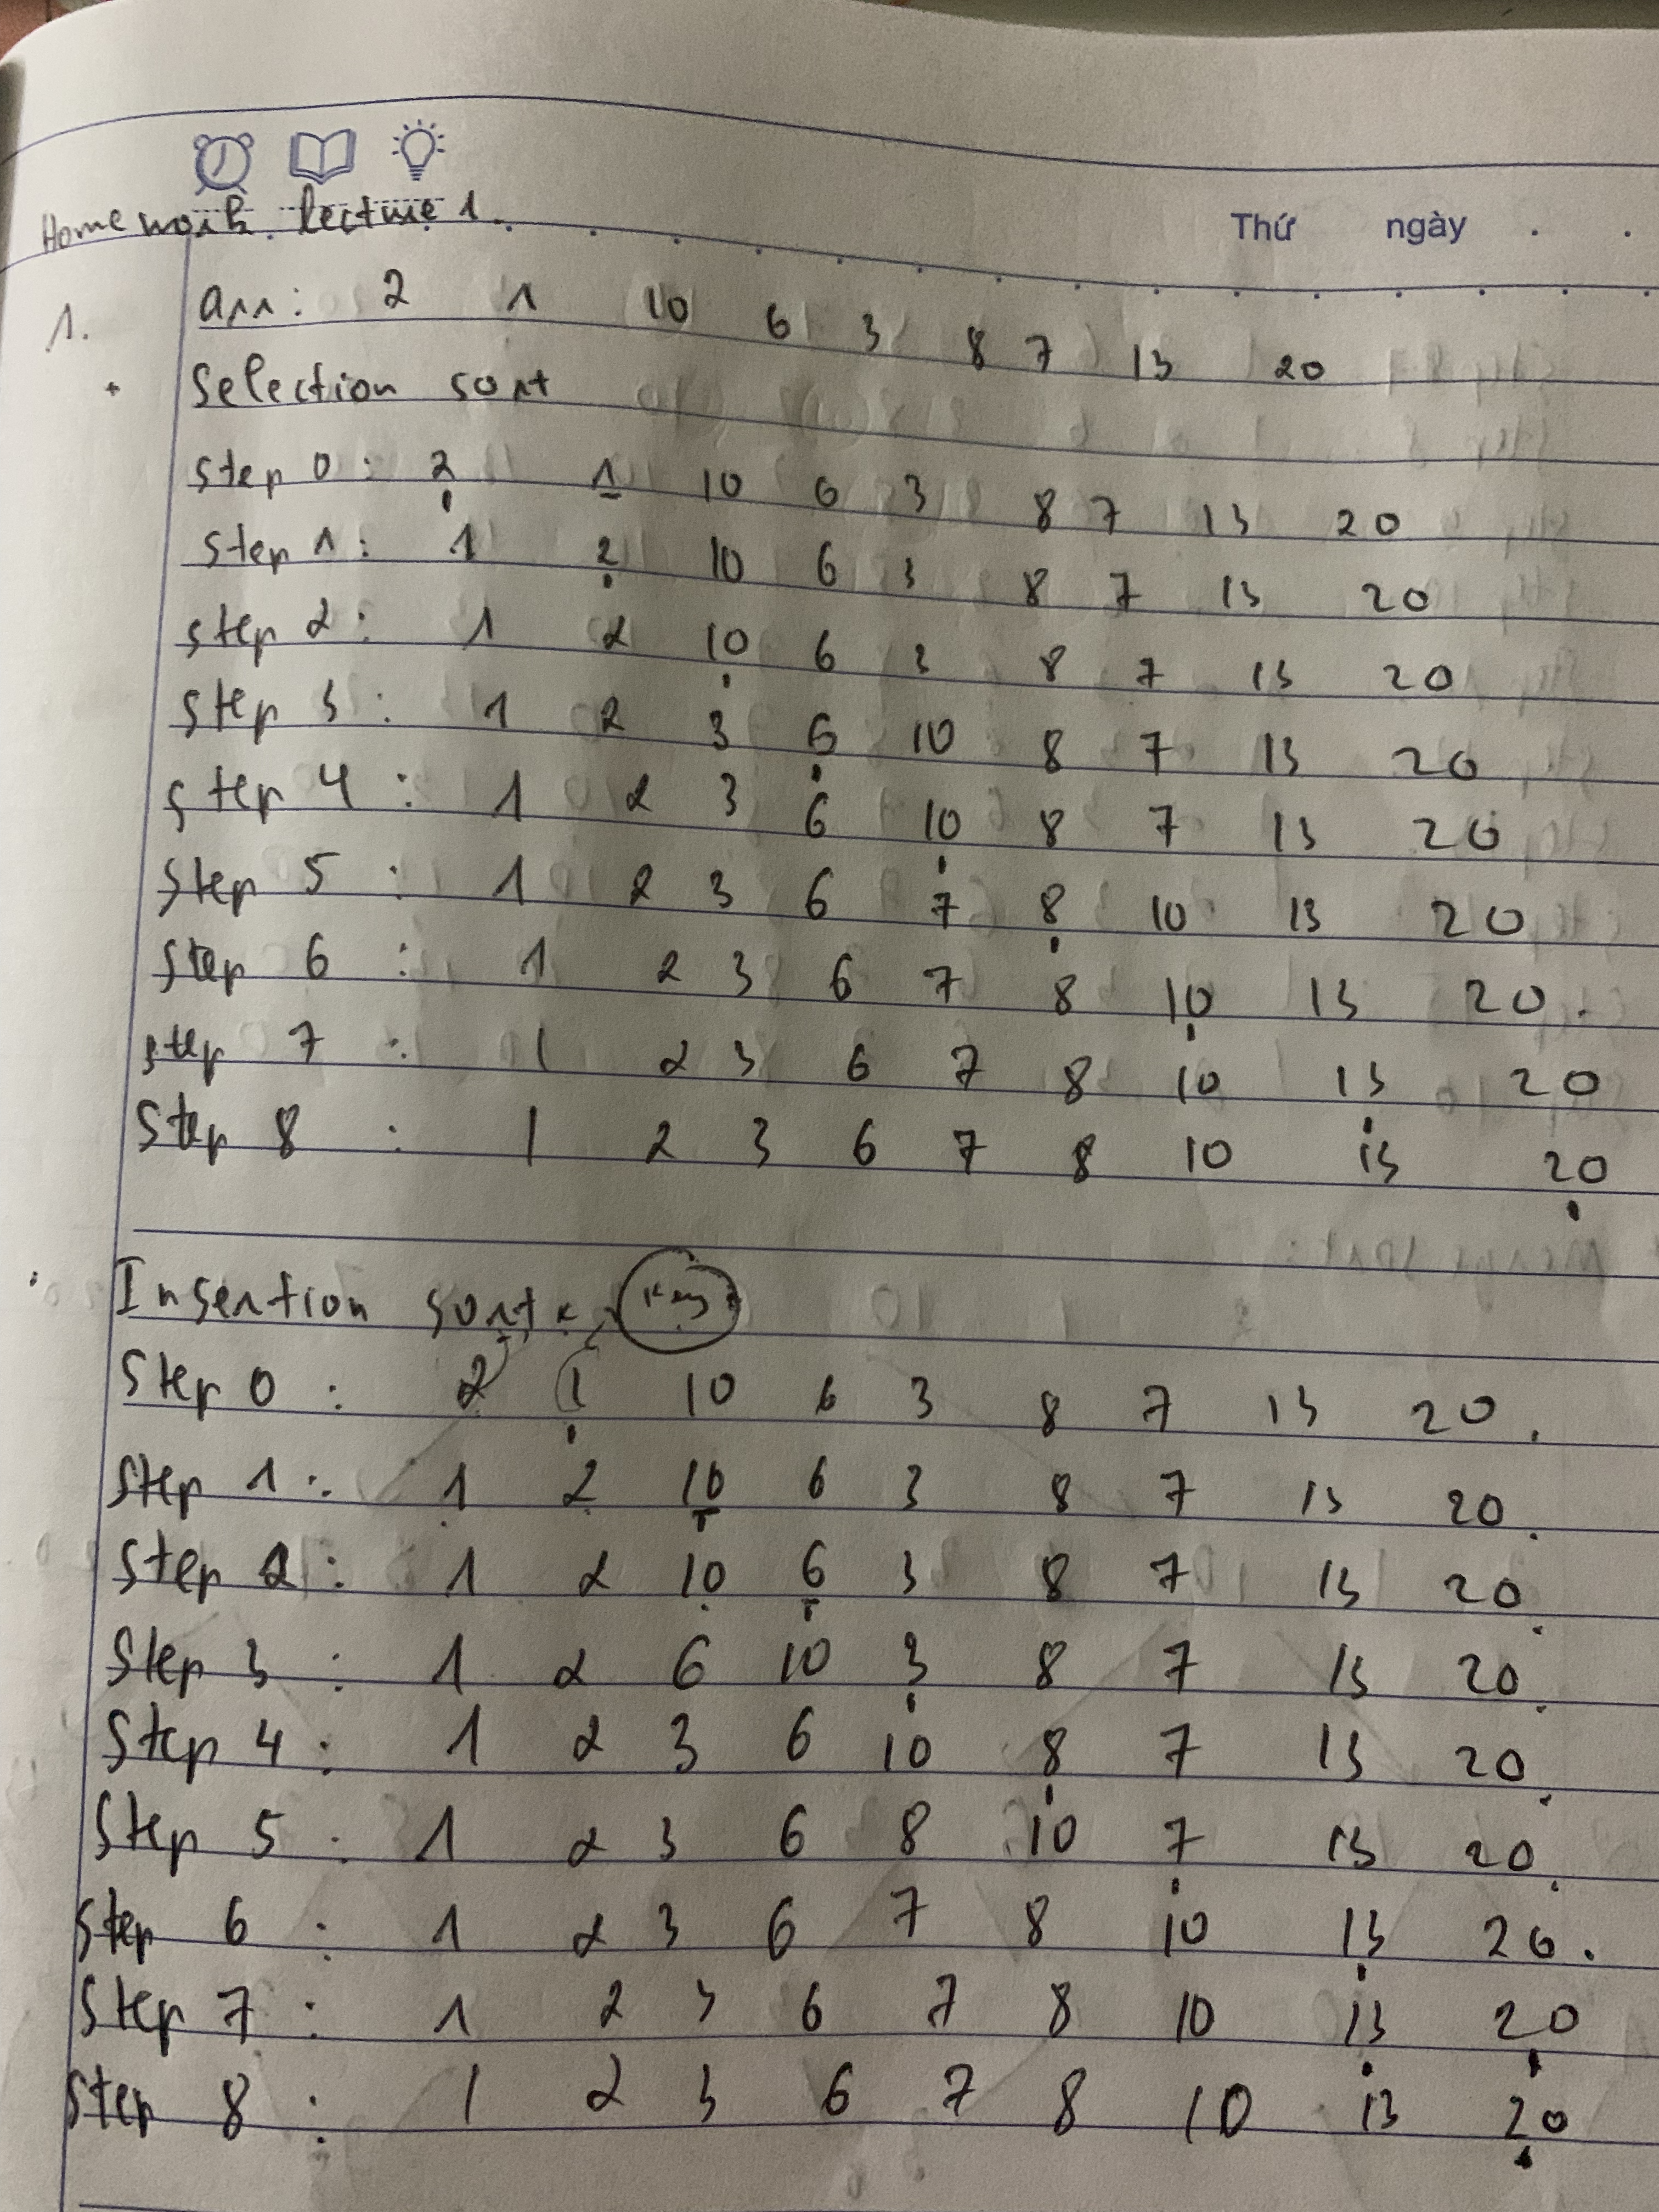 Homework lecture 1.
Thứ ngày
1. arr: 2 1 10 6 3 8 7 13 20
+ Selection sort
step 0 : 2 1 10 6 3 8 7 13 20
step 1 : 1 2 10 6 3 8 7 13 20
step 2 : 1 2 10 6 3 8 7 13 20
step 3 : 1 2 3 6 10 8 7 13 20
step 4 : 1 2 3 6 10 8 7 13 20
step 5 : 1 2 3 6 7 8 10 13 20
step 6 : 1 2 3 6 7 8 10 13 20.
step 7 : 1 2 3 6 7 8 10 13 20
step 8 : 1 2 3 6 7 8 10 13 20
Insertion sort key
Step 0 : 2 1 10 6 3 8 7 13 20.
Step 1 : 1 2 10 6 3 8 7 13 20.
Step 2 : 1 2 10 6 3 8 7 13 20.
Step 3 : 1 2 6 10 3 8 7 13 20.
Step 4 : 1 2 3 6 10 8 7 13 20.
Step 5 : 1 2 3 6 8 10 7 13 20.
Step 6 : 1 2 3 6 7 8 10 13 20.
Step 7 : 1 2 3 6 7 8 10 13 20
Step 8 : 1 2 3 6 7 8 10 13 20